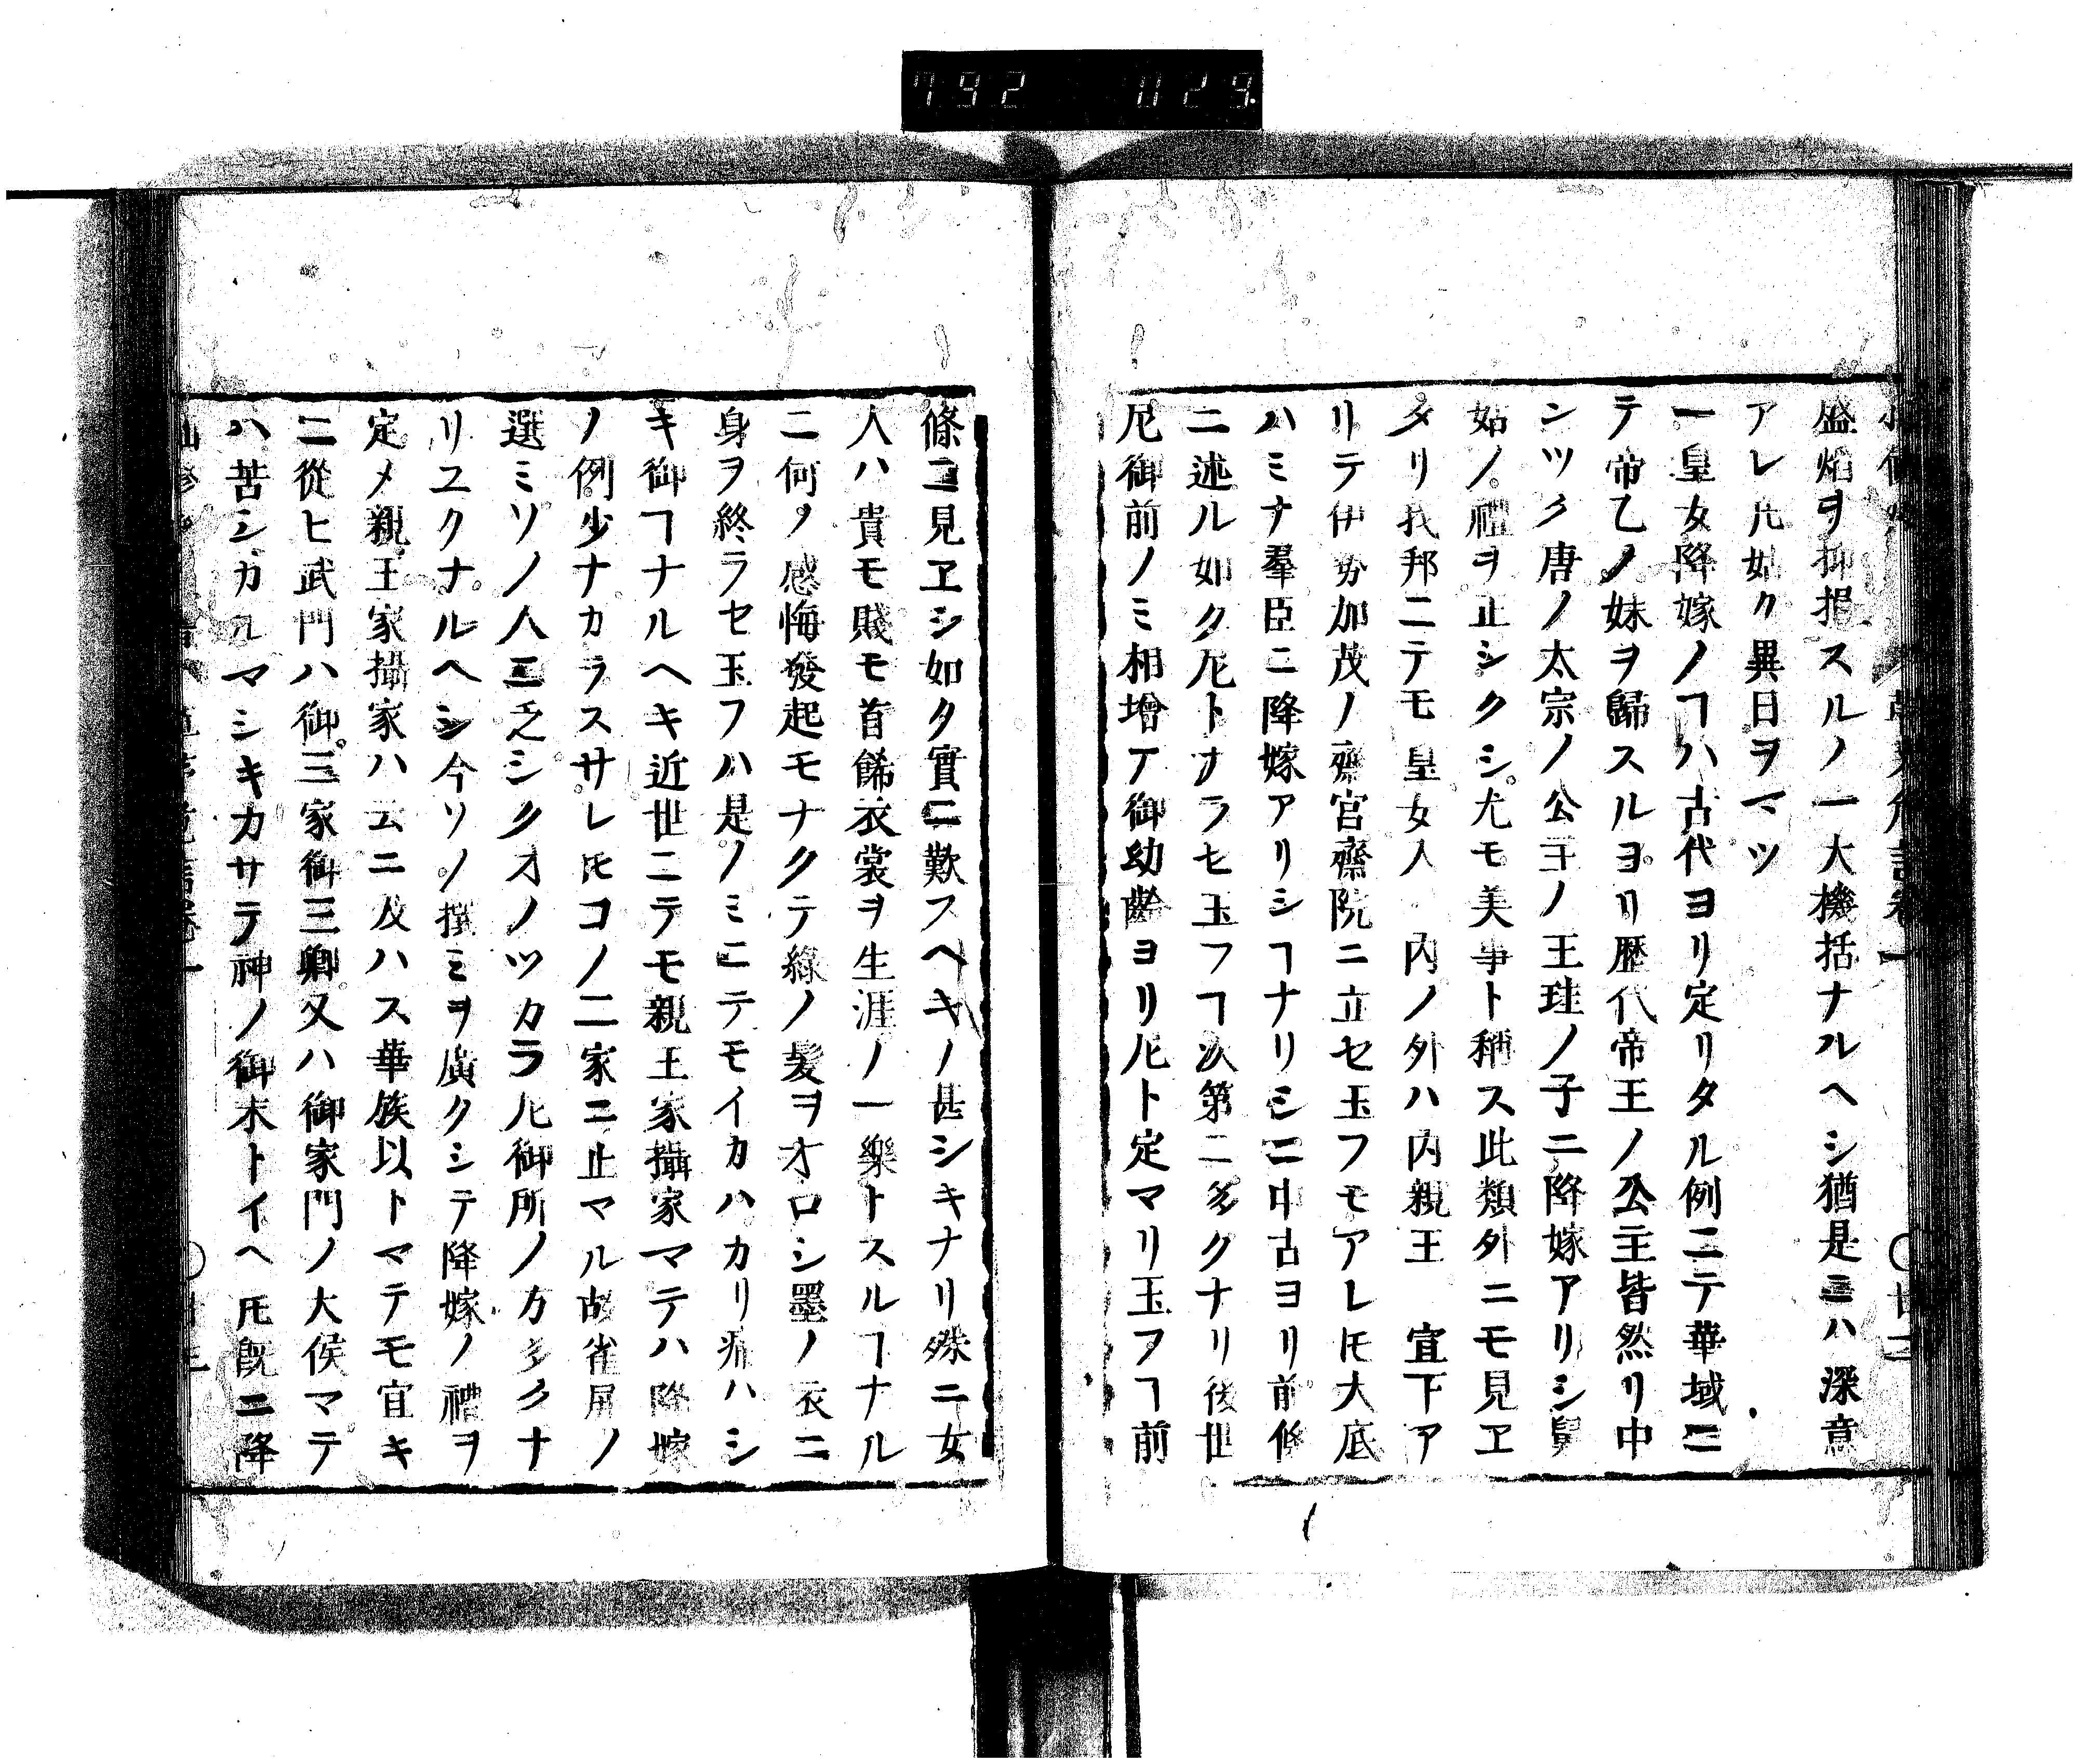 792 029
盛焰ヲ抑損スルノ一大機括ナルヘシ猶是ニハ深意
アレ𪜈姑ク異日ヲマツ
一皇女降嫁ノヿハ古代ヨリ定リタル例ニテ華域ニ
テ帝乙ノ妹ヲ歸スルヨリ歷代帝王ノ公主皆然リ中
ンツク唐ノ太宗ノ公主ノ王珪ノ子ニ降嫁アリシ舅
姑ノ禮ヲ正シクシ尤モ美事ト稱ス此類外ニモ見ヱ
タリ我邦ニテモ皇女入内ノ外ハ内親王宣下ア
リテ伊勢加茂ノ齋宮齋院ニ立セ玉フモアレ𪜈大底
ハミナ羣臣ニ降嫁アリシヿナリシニ中古ヨリ前條
ニ述ル如ク尼トナラセ玉フヿ次第ニ多クナリ後世
尼御前ノミ相增テ御幼齡ヨリ尼ト定マリ玉フヿ前
條ニ見ヱシ如ク實ニ歎スヘキノ甚シキナリ殊ニ女
人ハ貴モ賤モ首餙衣裳ヲ生涯ノ一樂トスルヿナル
ニ何ノ感悔發起モナクテ綠ノ髮ヲオロシ墨ノ衣ニ
身ヲ終ラセ玉フハ是ノミニテモイカハカリ痛ハシ
キ御ヿナルヘキ近世ニテモ親王家攝家マテハ降嫁
ノ例少ナカラスサレ𪜈コノ二家ニ止マル故雀屏ノ
選ミソノ人ニ乏シクオノツカラ尼御所ノ方多クナ
リユクナルヘシ今ソノ撰ミヲ廣クシテ降嫁ノ禮ヲ
定メ親王家攝家ハ云ニ及ハス華族以下マテモ宜キ
ニ從ヒ武門ハ御三家御三卿又ハ御家門ノ大侯マテ
ハ苦シカルマシキカサテ神ノ御末トイヘ𪜈既ニ降